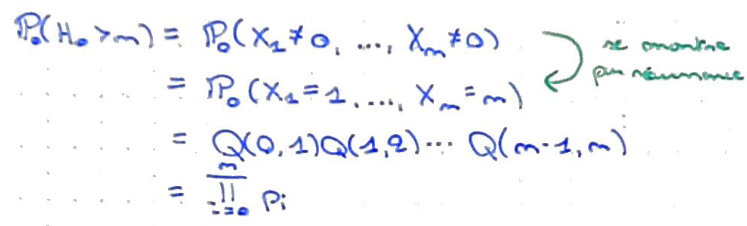 P₀(H₀>m) = P₀(X₁≠0, ..., X_m≠0)
se montre
par récurrence
= P₀(X₁=1, ..., X_m=m)
= Q(0,1)Q(1,2)··· Q(m-1,m)
= ∏_{i=0}^{m} p_i